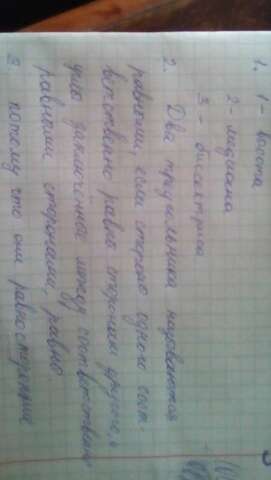 1. 1 - высота
2 - медиана
3 - биссектриса
2. Два треугольника называются
равными, если стороны одного соот-
ветственно равны сторонам другого, а
углы заключённые между соответственно
равными сторонами, равны.
3 потому что они равносторонние